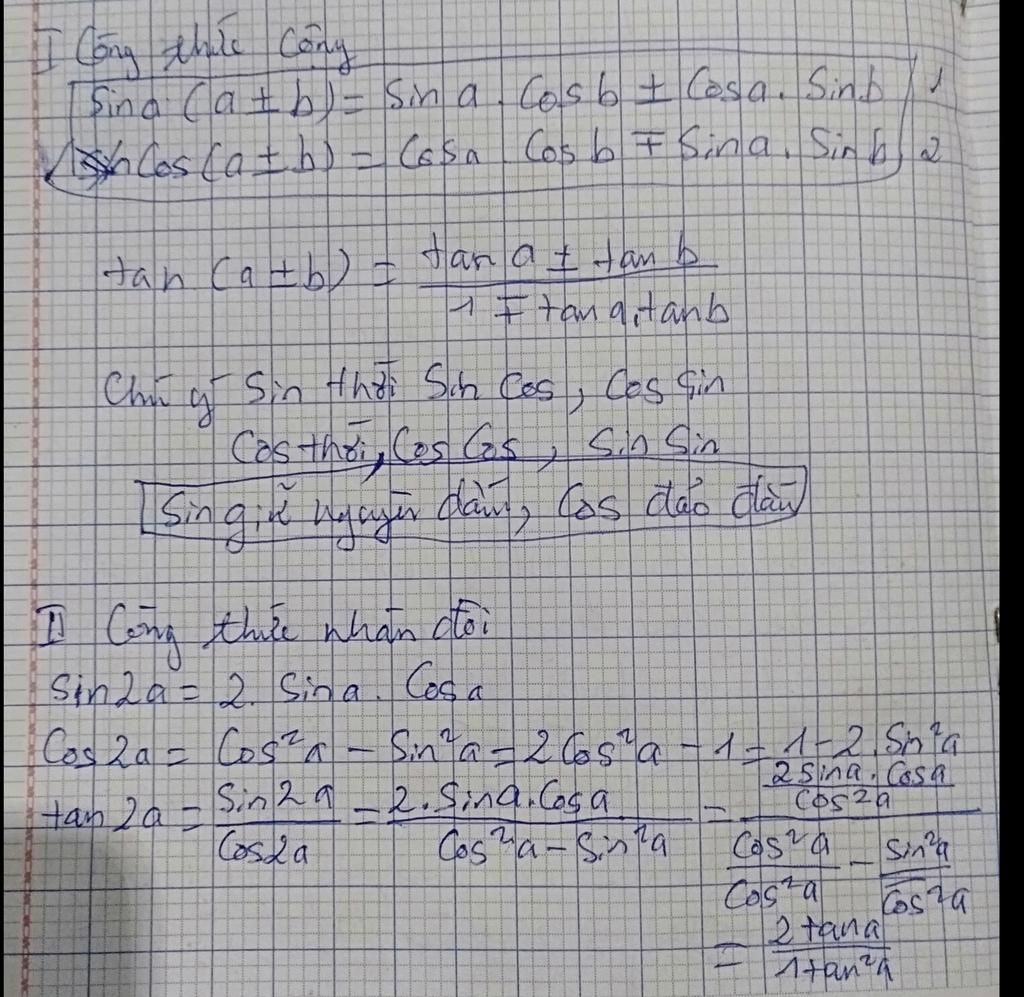 I Công thức Cộng
Sin a (a ± b) = Sin a . Cos b ± Cos a . Sin b 1
Cos (a ± b) = Cos a . Cos b ∓ Sin a . Sin b 2
tan (a ± b) = (tan a ± tan b) / (1 ∓ tan a . tan b)
Chú ý Sin thời Sin Cos, Cos Sin
Cos thời, Cos Cos, Sin Sin
Sin giữ nguyên dấu, Cos đảo dấu
II Công thức nhân đôi
Sin2a = 2. Sin a . Cos a
Cos 2a = Cos²a - Sin²a = 2 Cos²a - 1 = 1 - 2. Sin²a
tan 2a = Sin 2a / Cos2a = 2. Sin a. Cos a / (Cos²a - Sin²a) = (2 Sina. Cosa / Cos2a) / (Cos²a / Cos²a - Sin²a / Cos²a)
= 2 tan a / 1 tan²a